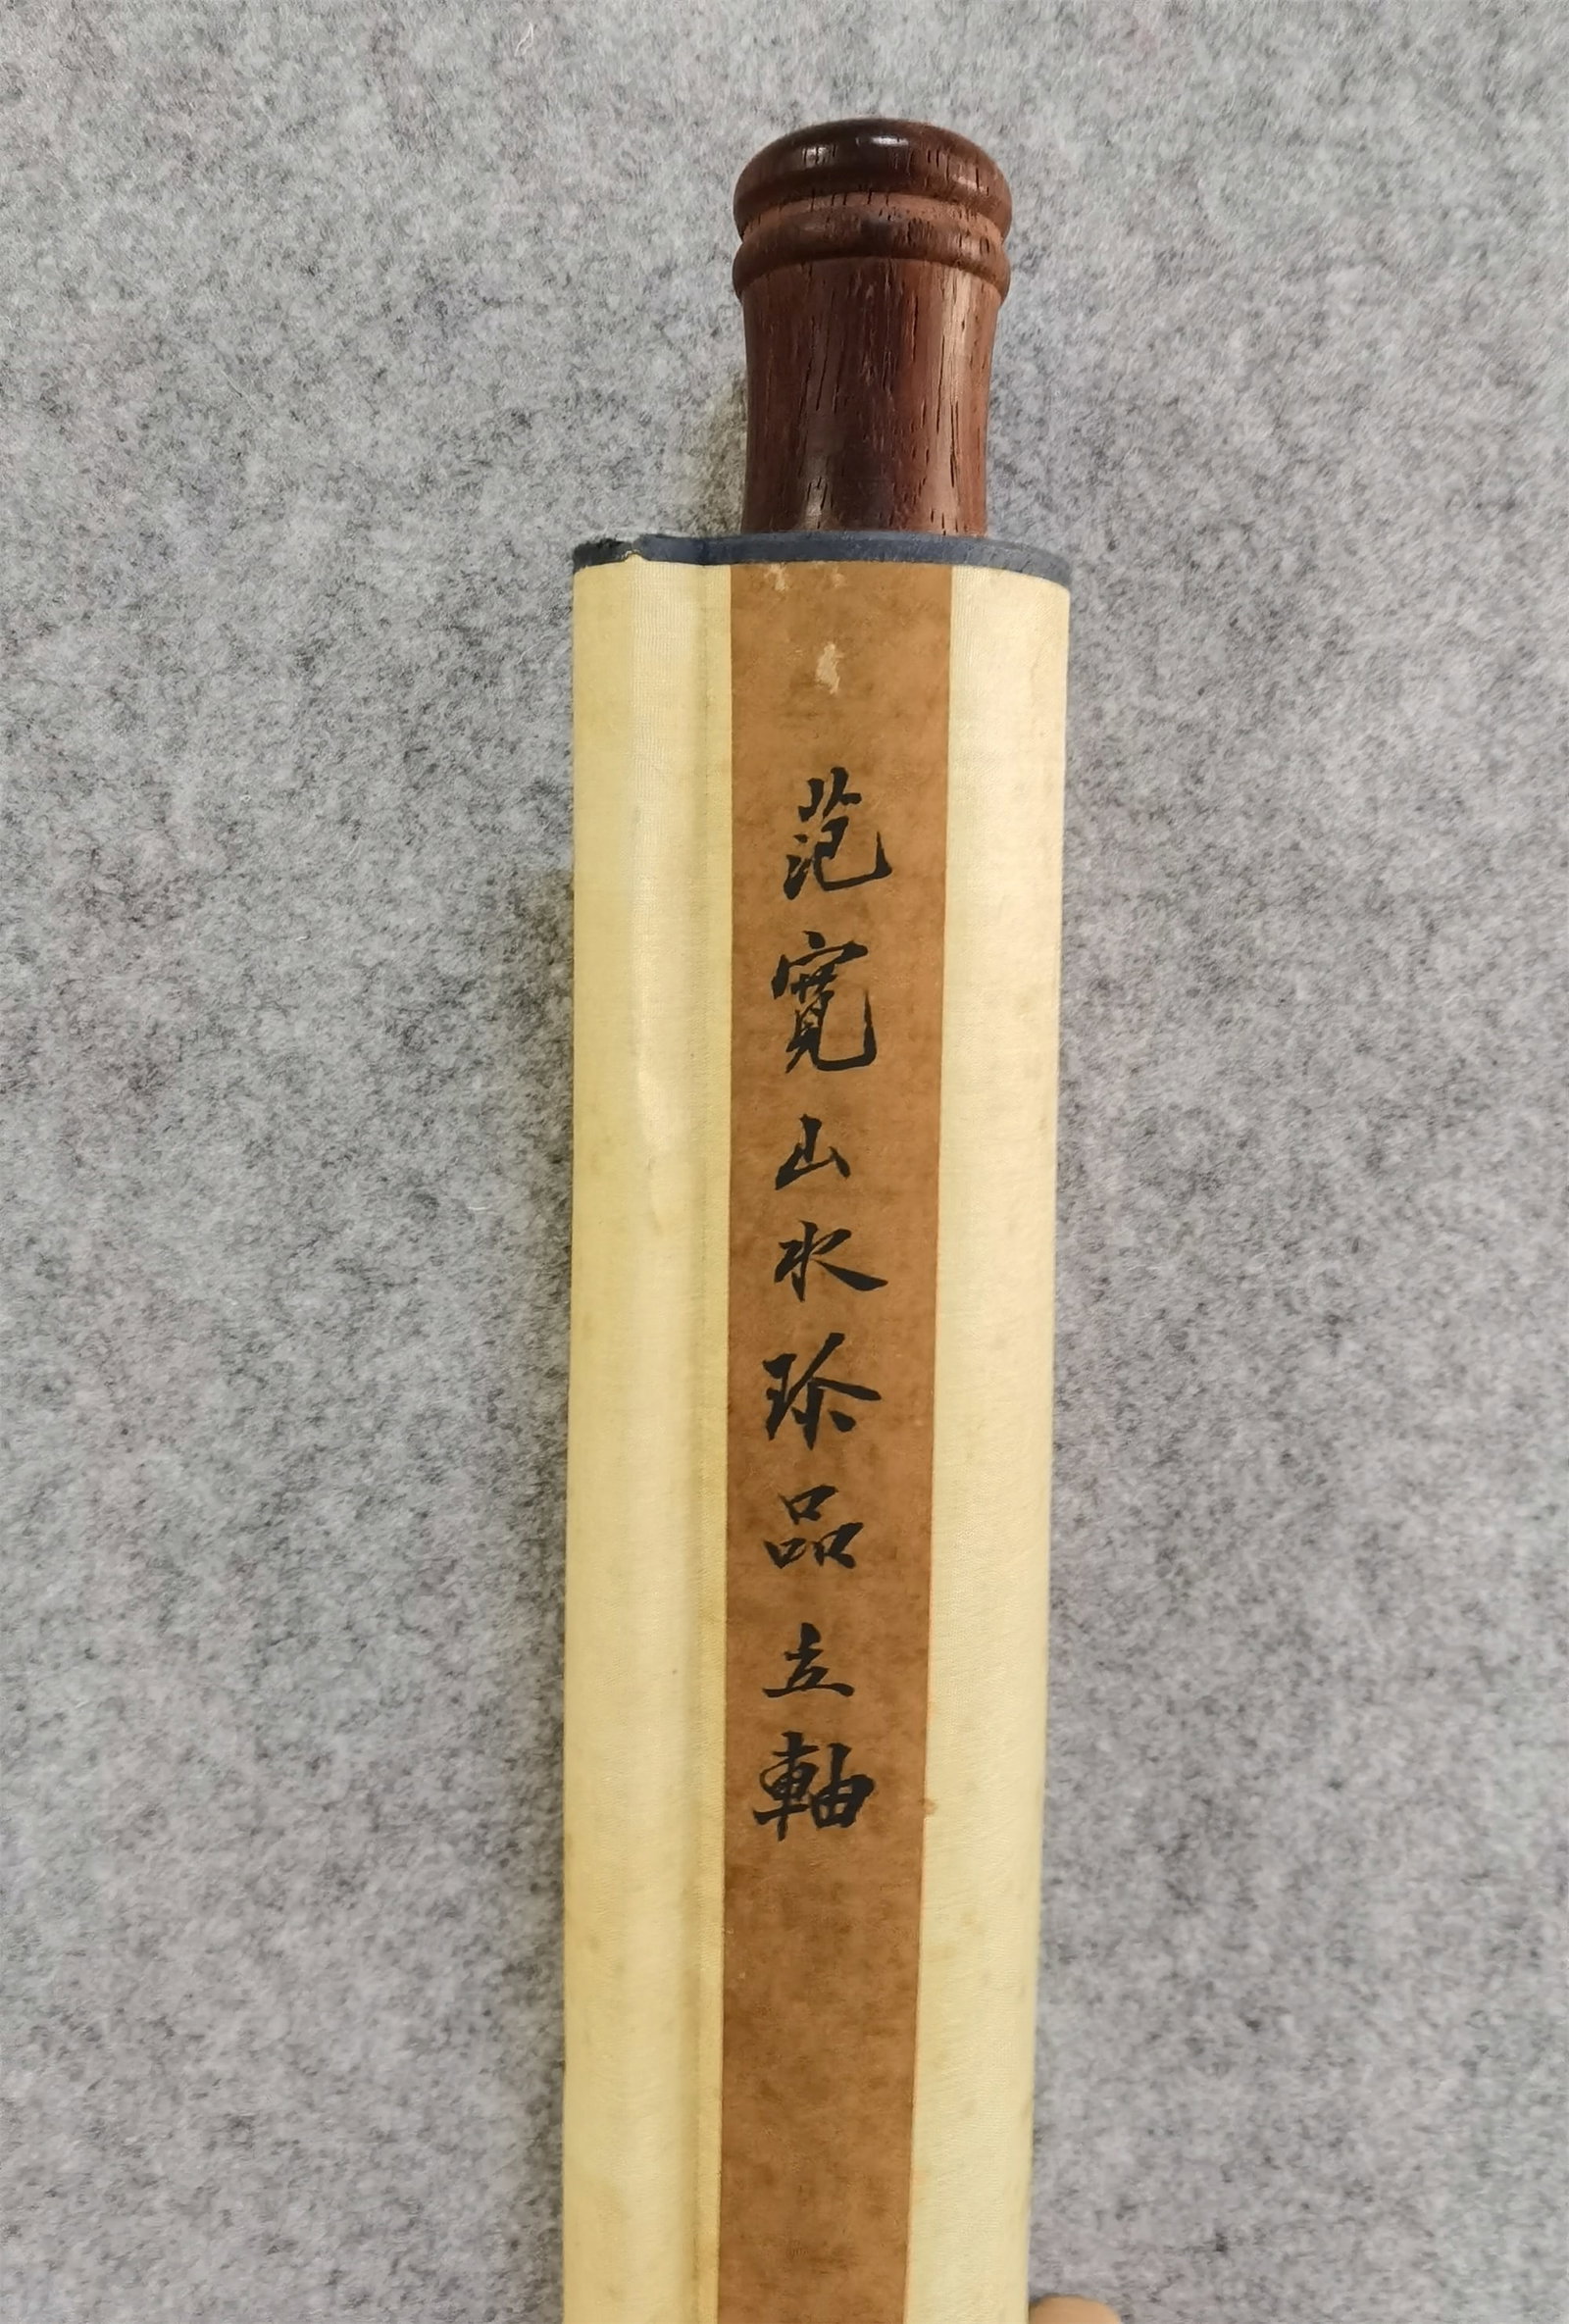 范寬山水珍品立軸